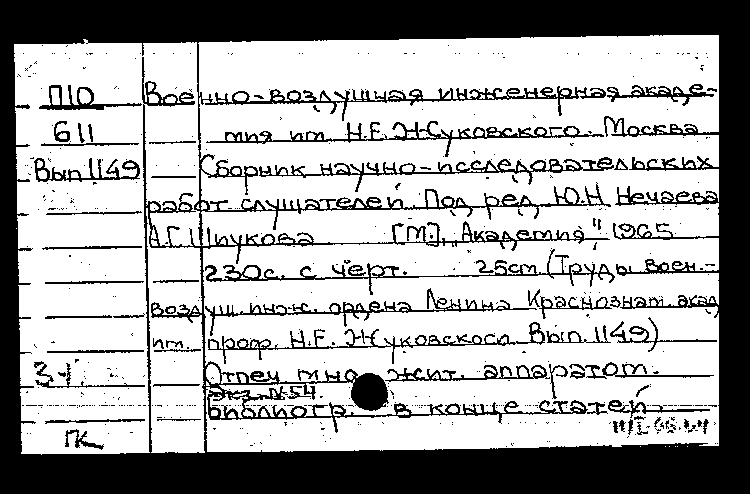 П10 Военно-воздушная инженерная акаде-
611 мия им. Н.Е. Жуковского. Москва
Вып 1149 Сборник научно-исследовательских
работ слушателей. Под ред. Ю.Н. Нечаева
А.Г. Шпукова [М.], „Академия", 1965
230с. с черт. 25см (Труды воен.-
воздуш. инж. ордена Ленина Краснознам. акад
им. проф. Н.Е. Жуковского. Вып. 1149)
Отпеч мно жит. аппаратом.
Экз. №54.
Библиогр. в конце статей
ГК